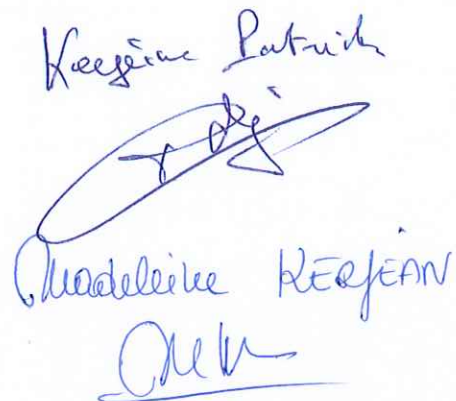 Kerjean Patrick
Madeleine KERJEAN